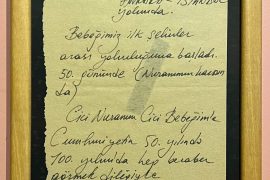 ANKARA - İSTANBUL
yolunda.
Bebeğimiz ilk şehirler
arası yolculuğuna başladı.
50. gününde (Nuranımın
da)
Cici Nuranım Cici Bebeğimle
Cumhuriyetin 50. yılında
100. yılında hep beraber
görmek dileğiyle